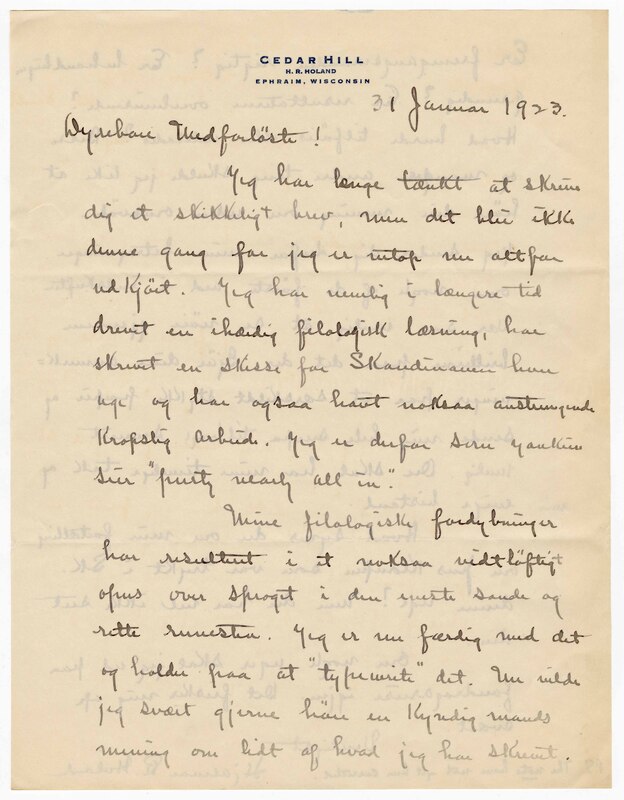 CEDAR HILL
H. R. HOLAND
EPHRAIM, WISCONSIN
31 Januar 1923.
Dyrebare Medforløste!
Jeg har længe tænkt at skrive
dig et skikkeligt brev, men det blir ikke
denne gang for jeg er netop nu altfor
udkjørt. Jeg har nemlig i længere tid
drevet en ihærdig filologisk læsning, har
skrevet en skisse for Skandinaven hver
uge og har ogsaa havt noksaa anstrengende
kropslig arbeide. Jeg er derfor som yankien
sier "purty nearly all in".
Mine filologiske fordybninger
har resulteret i et noksaa vidtløftigt
opus over sproget i den eneste sande og
rette runesten. Jeg er nu færdig med det
og holder paa at "typewrite" det. Nu vilde
jeg svært gjerne høre en kyndig mands
mening om lidt af hvad jeg har skrevet.